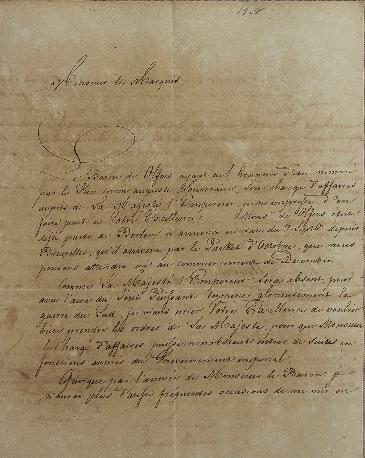 Monsieur le Marquis
Le Baron de ayant eu l'honneur d'être nommé
par le Roi mon auguste Souverain, Son chargé d'affaires
auprès de Sa Majesté l'Empereur, je m'empresse d'en
faire part à Votre Excellence. Mons. de étant
déjà parti de Berlin à annoncé en date du 7 Sept. depuis
Bruxelles, qu'il arrivera par le Packet d'Octobre, que nous
pouvons attendre ici au commencement de Décembre.
Comme Sa Majesté l'Empereur sera absent, pour
avec l'aide du terminer glorieusement la
guerre du Sud, je viens prier Votre Excellence de vouloir
bien prendre les ordres de Sa Majesté, pour que Monsieur
le chargé d'affaires, puisse nonobstant entrer de suite en
fonctions auprès du Gouvernement impérial.
Quoique par l'arrivée de Monsieur le Baron je
n'aurai plus d'aussi fréquentes occasions de me voir en